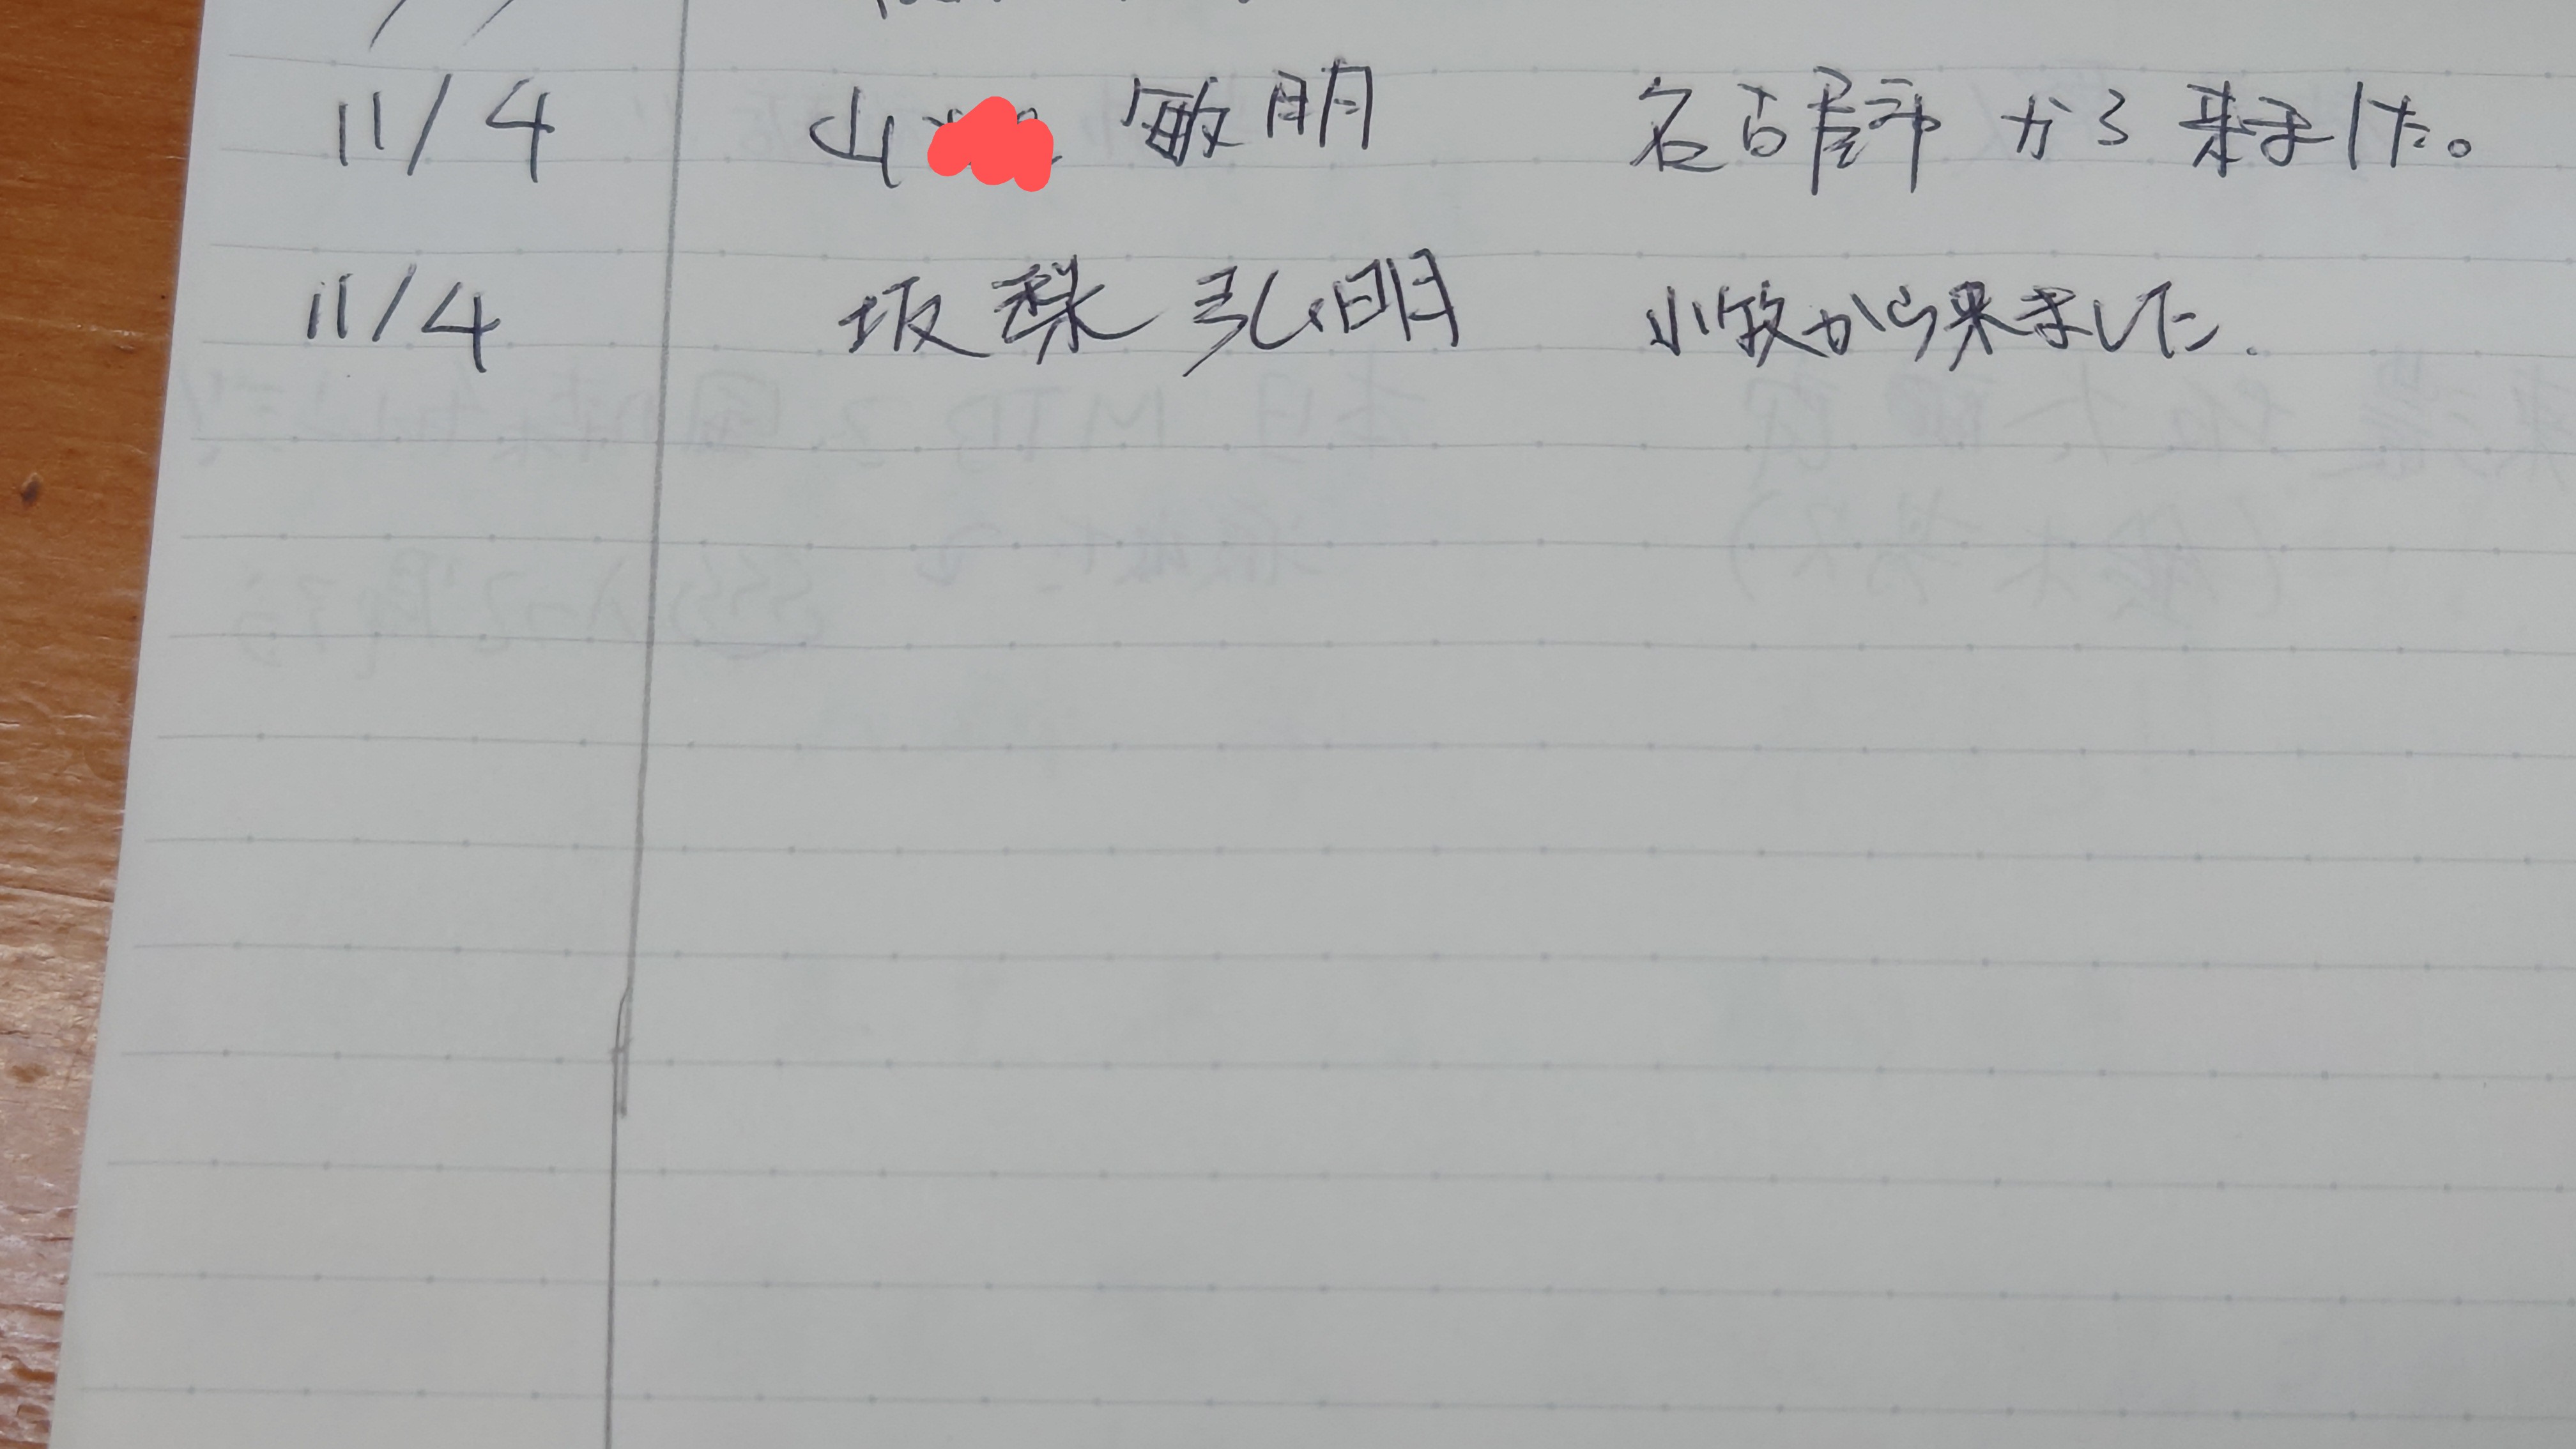 11/4 山 敏明 名古屋市から来ました。
11/4 坂梨弘明 小牧から来ました.